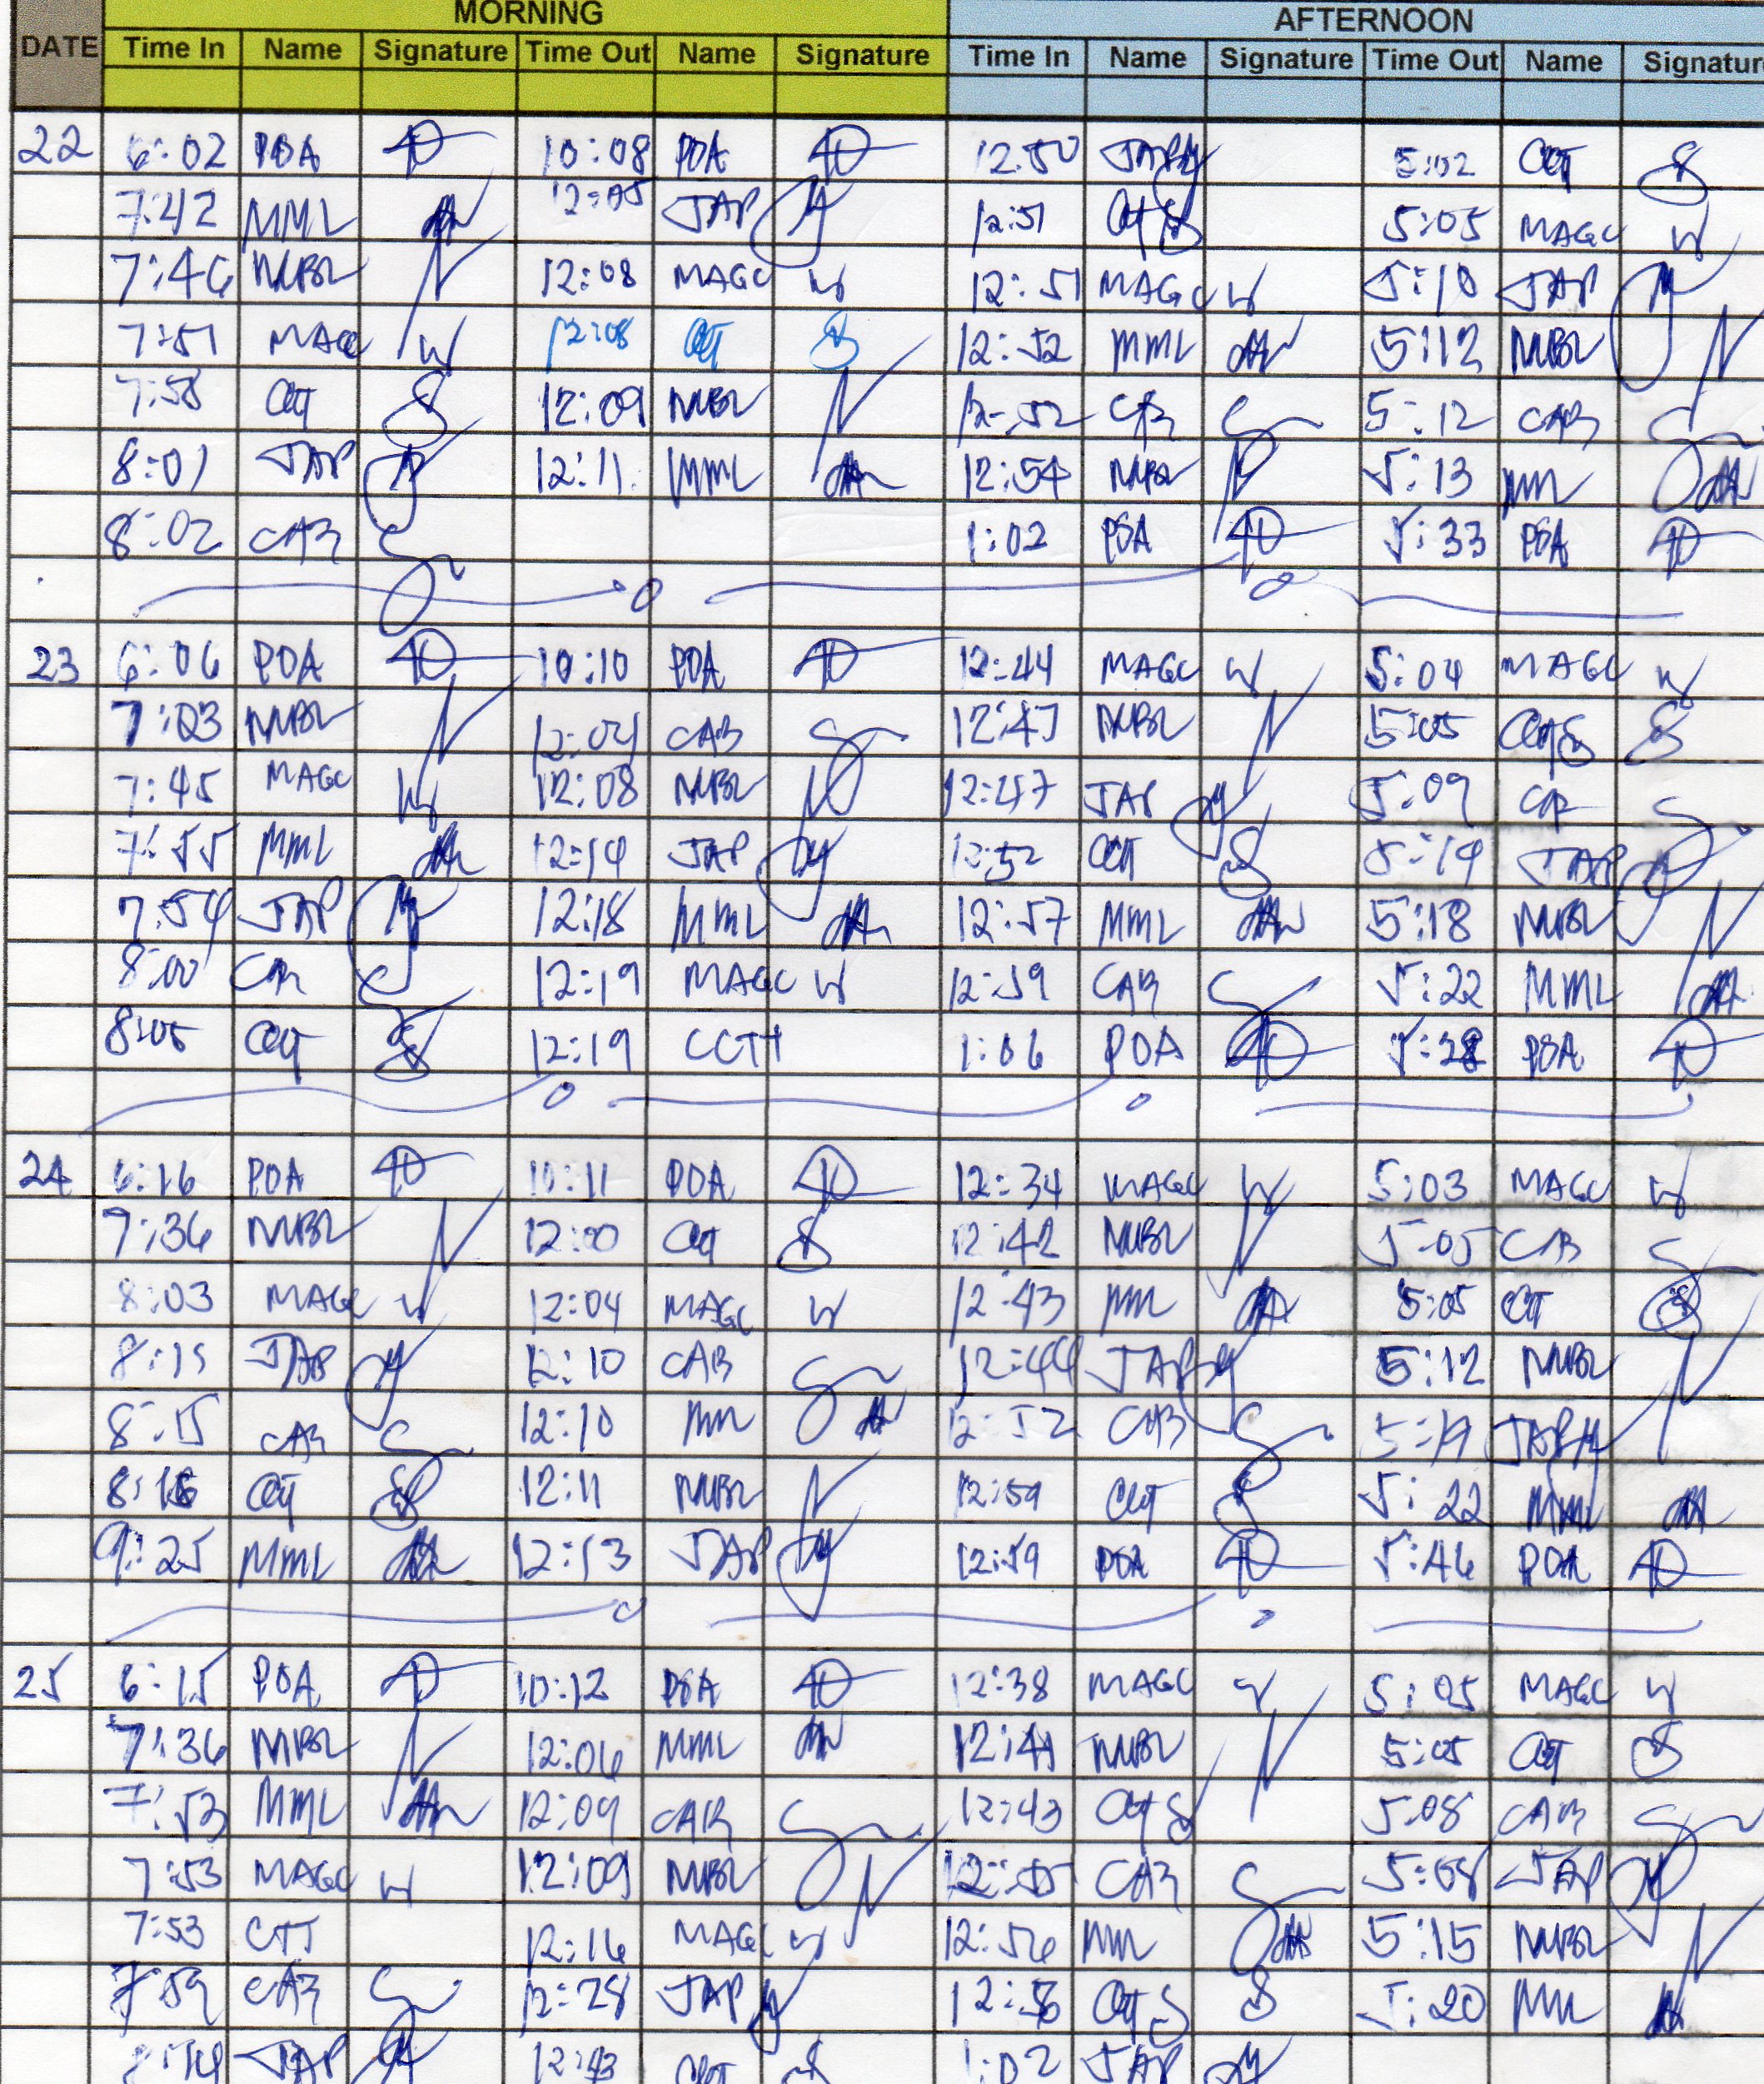 MORNING AFTERNOON
DATE Time In Name Signature Time Out Name Signature Time In Name Signature Time Out Name Signature
22 6:02 POA 10:08 POA 12:50 JAP 5:02 CCT
7:42 MML 12:05 JAP 12:51 CCT 5:05 MAGC
7:46 NUBL 12:08 MAGC 12:51 MAGC 5:10 JAP
7:51 MAGC 12:08 CCT 12:52 MML 5:12 NUBL
7:58 CCT 12:09 NUBL 12:52 CAB 5:12 CAB
8:01 JAP 12:11 MML 12:54 NUBL 5:13 MML
8:02 CAB 1:02 POA 5:33 POA
23 6:06 POA 10:10 POA 12:44 MAGC 5:04 MAGC
7:23 NUBL 12:04 CAB 12:47 NUBL 5:05 CCT
7:45 MAGC 12:08 NUBL 12:47 JAP 5:09 CAB
7:55 MML 12:14 JAP 12:52 CCT 5:14 JAP
7:54 JAP 12:18 MML 12:57 MML 5:18 NUBL
8:00 CAB 12:19 MAGC 12:59 CAB 5:22 MML
8:05 CCT 12:19 CCT 1:06 POA 5:28 POA
24 6:16 POA 10:11 POA 12:34 MAGC 5:03 MAGC
7:36 NUBL 12:00 CCT 12:42 NUBL 5:05 CAB
8:03 MAGC 12:04 MAGC 12:43 MML 5:05 CCT
8:15 JAP 12:10 CAB 12:44 JAP 5:12 NUBL
8:15 CAB 12:10 MML 12:52 CAB 5:19 JAP
8:18 CCT 12:11 NUBL 12:59 CCT 5:22 MML
9:25 MML 12:13 JAP 12:59 POA 5:46 POA
25 6:15 POA 10:12 POA 12:38 MAGC 5:05 MAGC
7:36 NUBL 12:06 MML 12:41 NUBL 5:05 CCT
7:53 MML 12:09 CAB 12:43 CCT 5:08 CAB
7:53 MAGC 12:09 NUBL 12:55 CAB 5:08 JAP
7:53 CTT 12:16 MAGC 12:56 MML 5:15 NUBL
7:59 CAB 12:28 JAP 12:56 CCT 5:20 MML
JAP 12:43 CCT 1:02 JAP